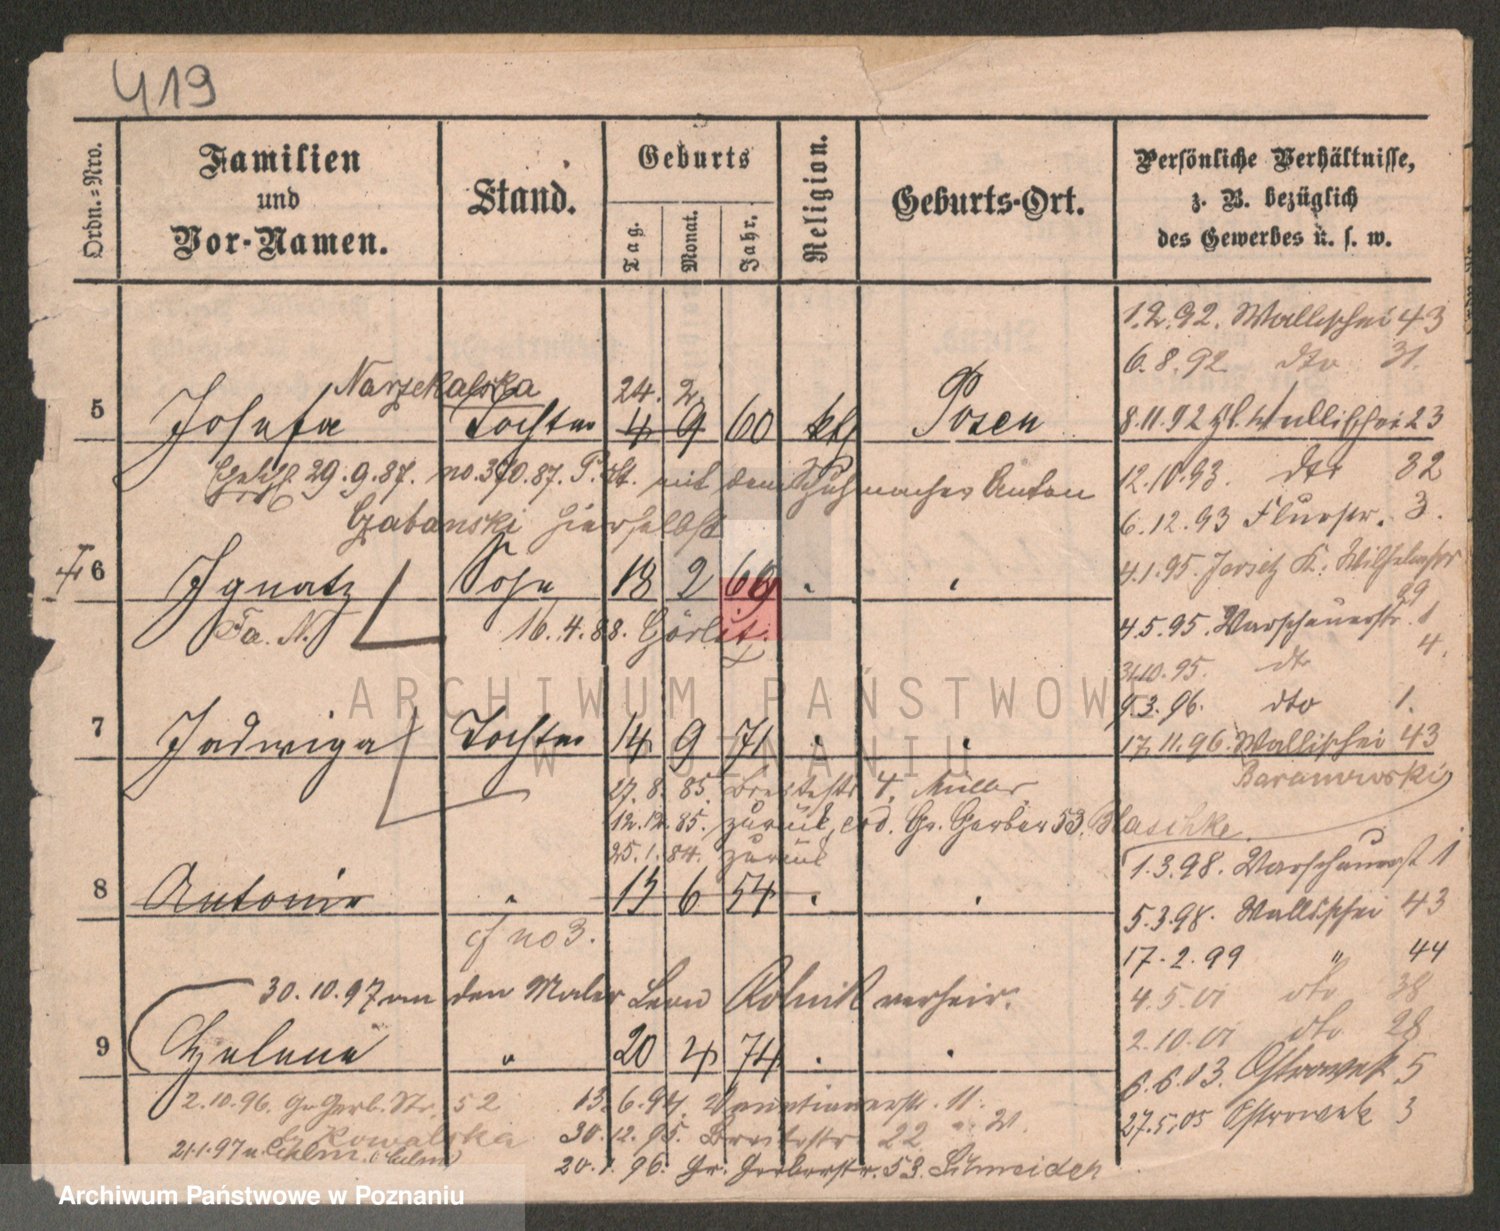 419
Ordn.=Nro.
Familien
und
Vor-Namen.
Stand.
Geburts
Tag.
Monat.
Jahr.
Religion.
Geburts-Ort.
Persönliche Verhältnisse,
z. B. bezüglich
des Gewerbes u. s. w.
1.2.92. Wallischei 43
6.8.92 dto 31.
Narzekalska 24. 2
5 Josefa Tochter 4 9 60 kth Posen
8.11.92 Wallischei 23
29.9.87. no. 370.87. mit dem Schuhmacher Anton
12.10.93. dto 32
Gabanski hierselbst
6.12.93 Flurstr. 3.
6 Ignatz Sohn 18 2 69
4.1.95. Jersitz K. Wilhelmstr
Fa. N. 16.4.88. Görlitz
4.5.95. Warschauerstr. 1
31.10.95. dto 4.
9.3.96. dto 1.
7 Jadwiga Tochter 14 9 71
17.11.96. Wallischei 43
Baranowski
27.8.85. Breitestr 4. Müller
12.12.85. zurück, Gr. Gerber 53. Blaschke
25.1.84. zurück
1.3.98. Warschauerst 1
8 Antonie " 13 6 54
5.3.98. Wallischei 43
cf no 3.
17.2.99 " 44
30.10.97 an den Maler Leon Rolnik verheir.
4.5.01 dto 38
2.10.01 dto 28
9 Helene " 20 4 74
6.6.03. Ostrowek 5
2.10.96. Gr Gerb. Str. 52 13.6.94. 11.
27.5.05 Ostrowek 3
Kowalska 30.12.95. Breitestr. 22
21.1.97 n. Culm. (Culm) 20.1.96. Gr. Gerberstr. 53. Schneider
ARCHIWUM PAŃSTWOW
W POZNANIU
Archiwum Państwowe w Poznaniu